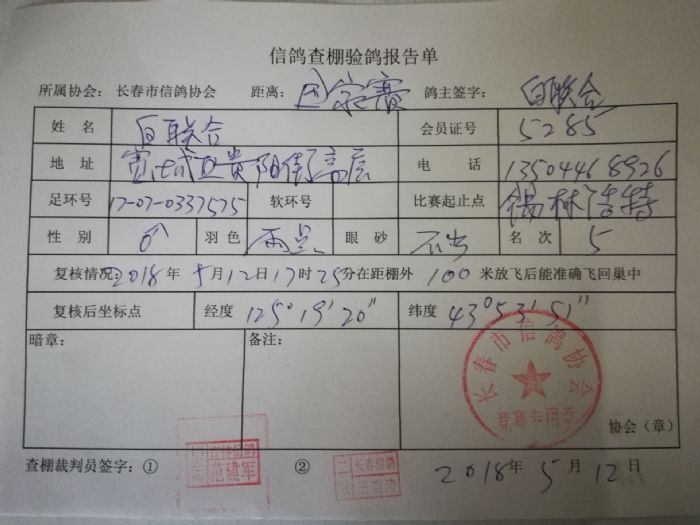 信鸽查棚验鸽报告单
所属协会: 长春市信鸽协会 距离: 国家赛 鸽主签字: 白联合
姓 名 白联合 会员证号 5285
地 址 宽城区贵阳街高层 电 话 13504468926
足环号 17-07-0337575 软环号 比赛起止点 锡林浩特
性 别 羽色 雨点 眼 砂 名 次 5
复核情况: 2018年5月12日17时25分在距棚外 100 米放飞后能准确飞回巢中
复核后坐标点 经度 125°19'20" 纬度 43°53'51"
暗章: 备注:
长春市信鸽协会
竞赛专用章
协会（章）
查棚裁判员签字: ① 吉林信鸽 范建军 ② 长春信鸽
2018年5月12日